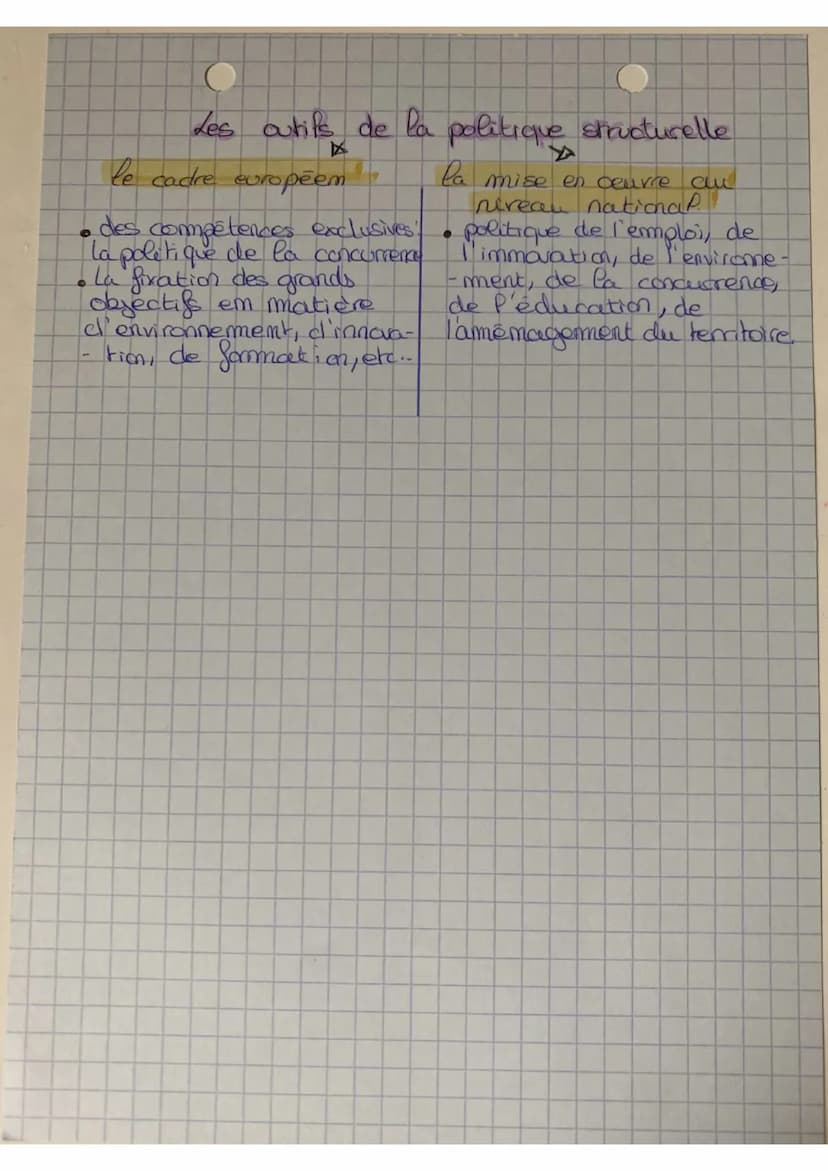 Les outils de la politique structurelle
le cadre européen
des compétences exclusives:
la politique de la concurrence
La fixation des grands
objectifs en matière
d'environnement, d'innova-
- tion, de formation, etc...
la mise en oeuvre au
niveau national
politique de l'emploi, de
l'innovation, de l'environne-
-ment, de la concurrence,
de l'éducation, de
l'aménagement du territoire.